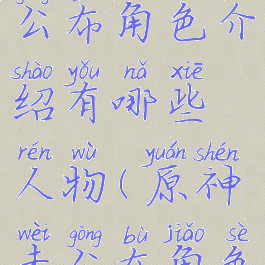 公布角色介
shào yǒu nǎ xiē
绍有哪些
rén wù yuán shén
人物(原神
wèi gōng bù jiǎo sè